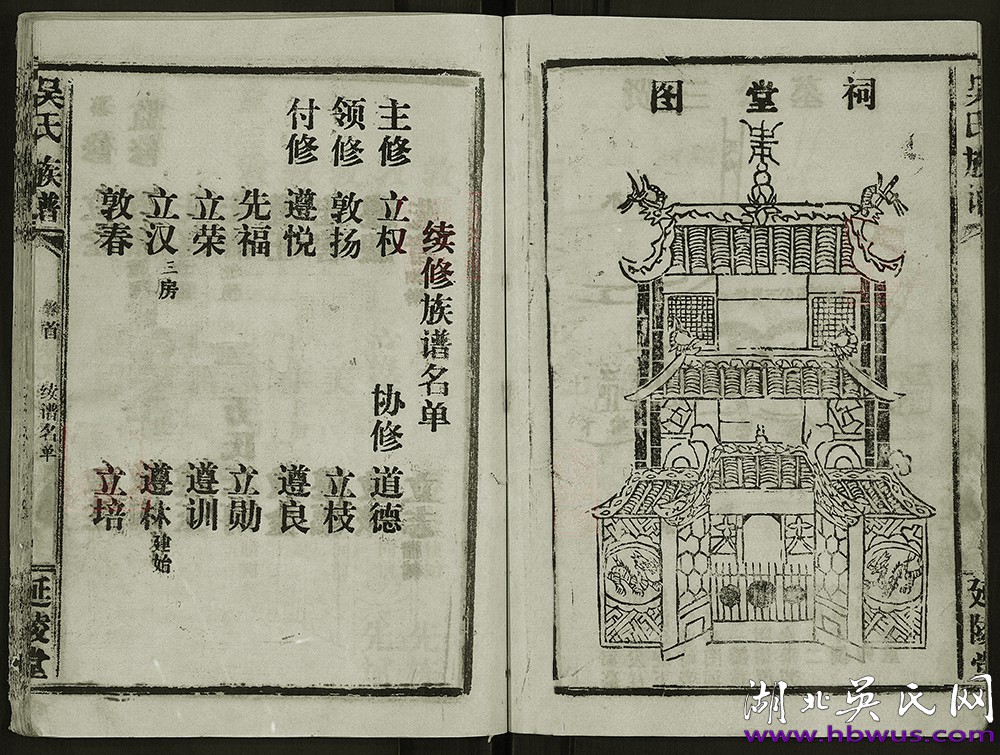 吴氏族谱
延陵堂
祠堂图
续修族谱名单
主修 立权
领修 敦扬
付修 遵悦
先福
立荣
立汉 三房
敦春
协修 道德
立枝
遵良
立勋
遵训
遵林 建始
立培
吴氏族谱
卷首
续谱名单
延陵堂
湖北吴氏网
www.hbwus.com